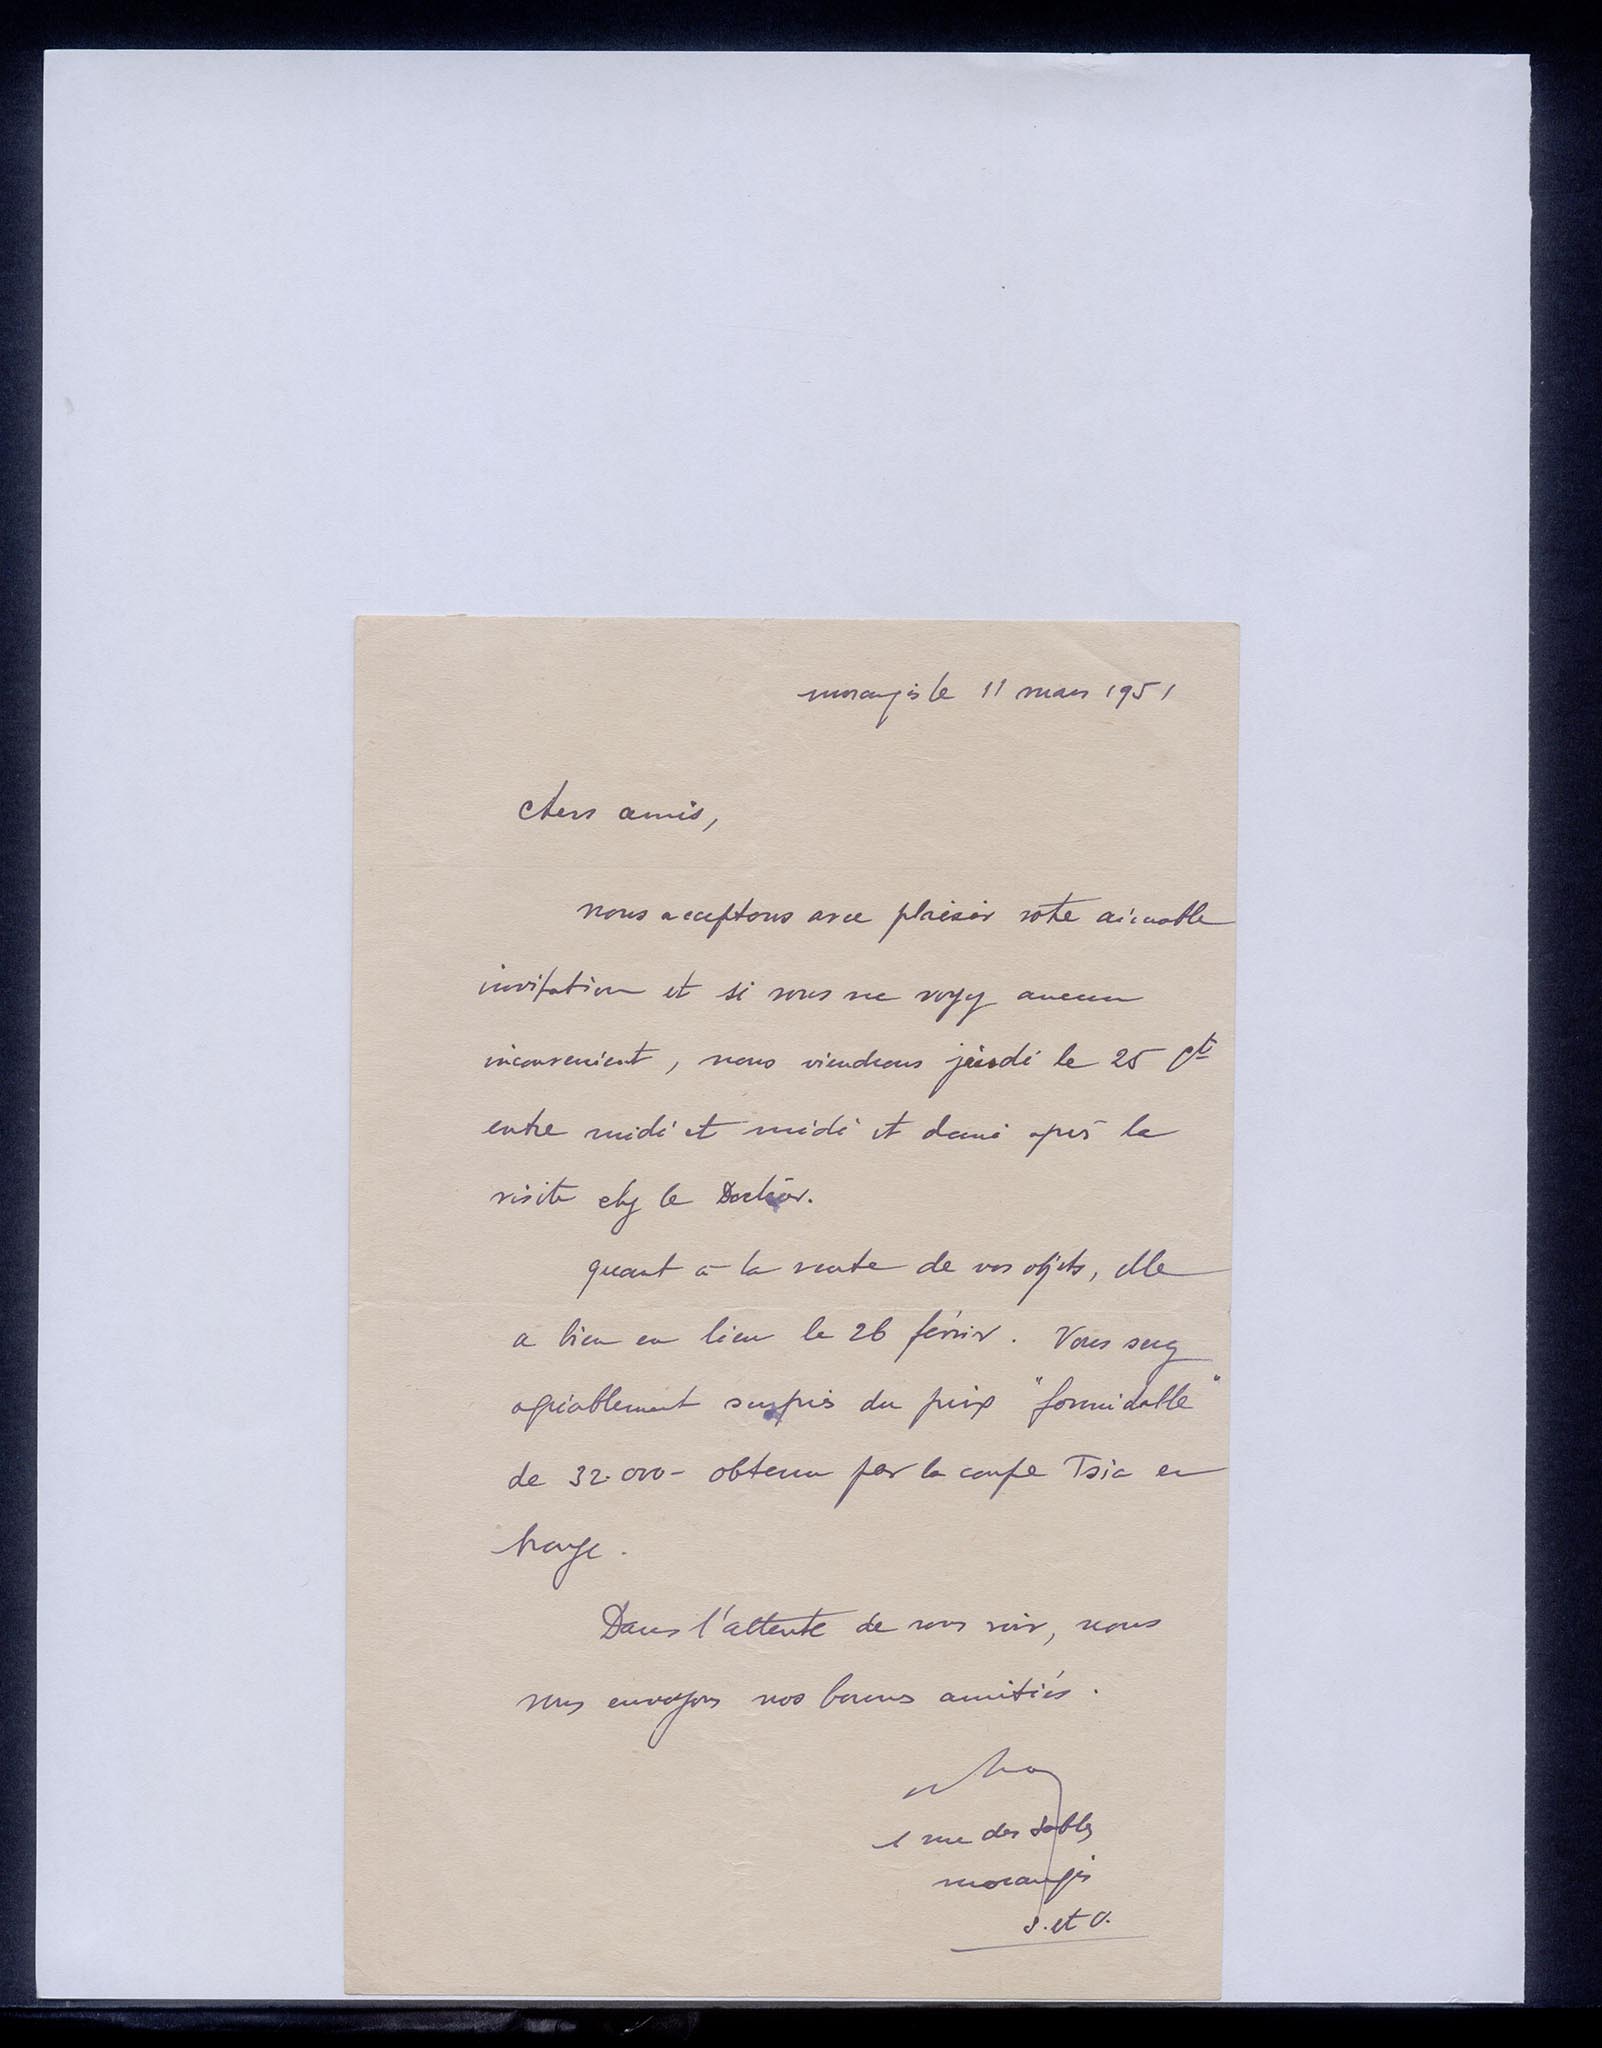 morangis le 11 mars 1951
chers amis,
nous acceptons avec plaisir votre aimable
invitation et si vous ne voyez aucun
inconvenient, nous viendrons jeudi le 25 ct
entre midi et midi et demi après la
visite chez le Docteur.
quant à la vente de vos objets, elle
a bien eu lieu le 26 février. Vous serez
agréablement surpris du prix "formidable"
de 32.000- obtenu par la coupe Tsia en
Dans l'attente de vous voir, nous
vous envoyons nos bonnes amitiés.
1 rue des Sables
morangis
S. et O.